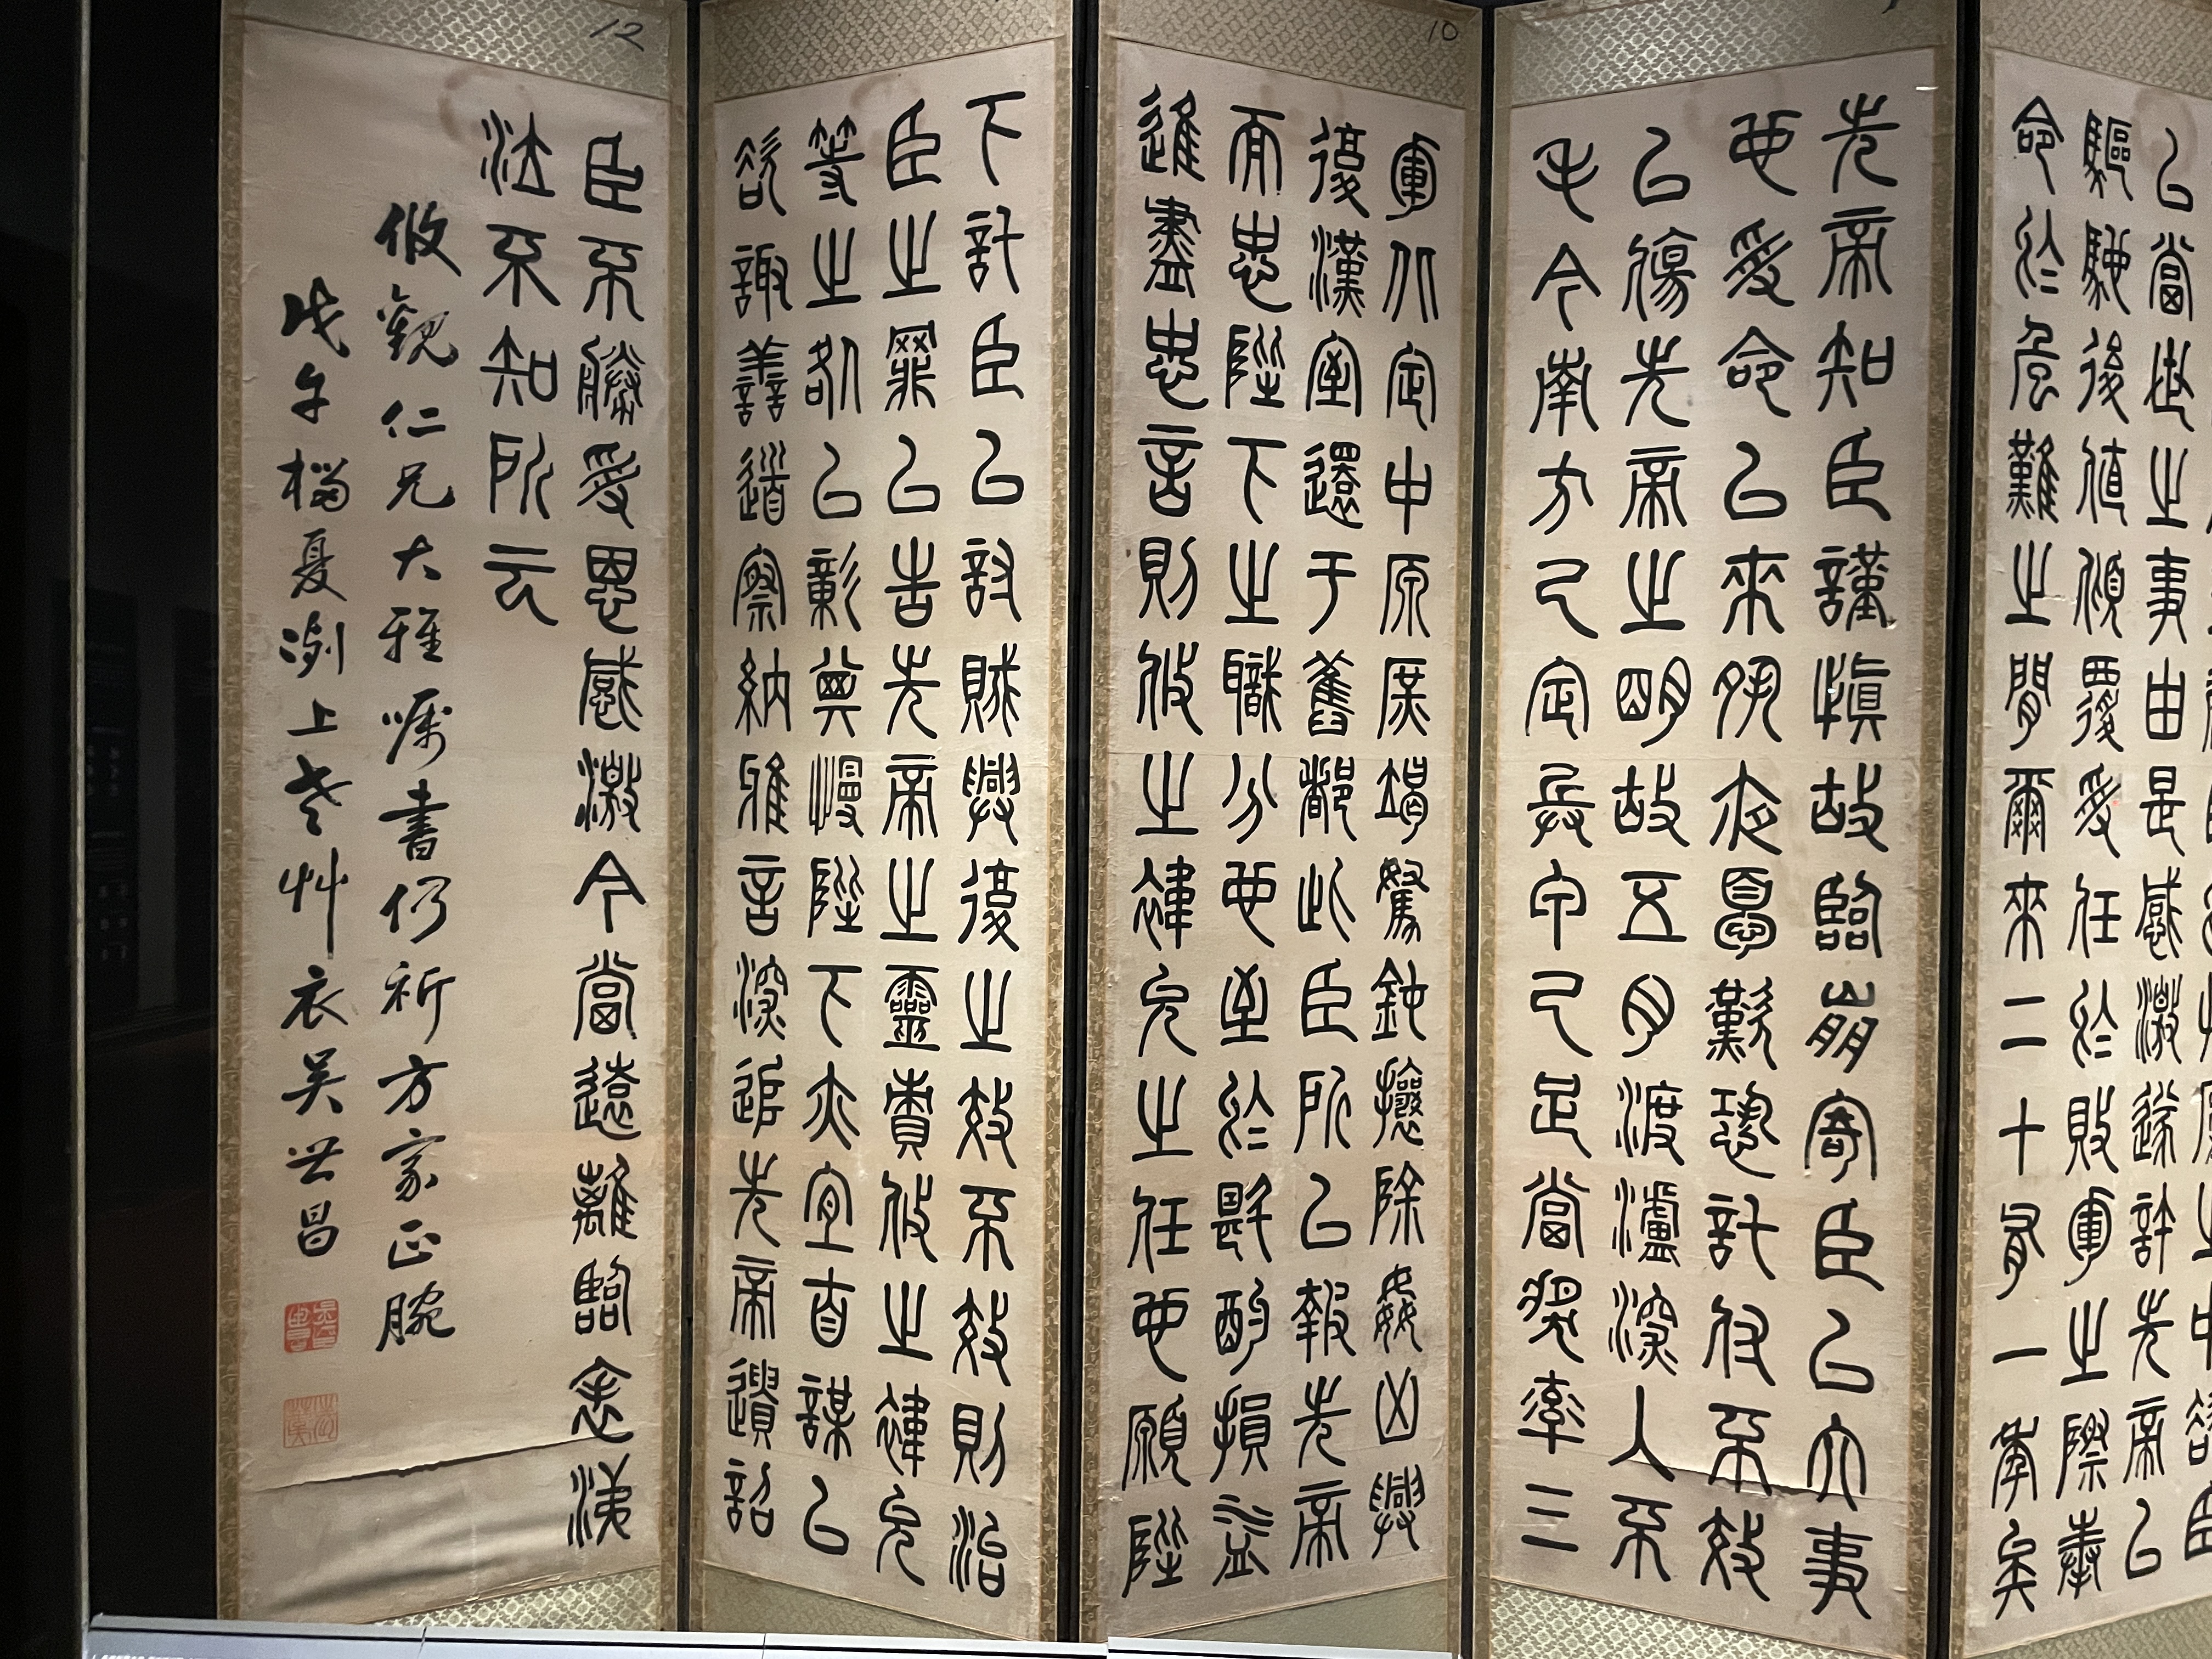 12
10
以當世之事由是感激遂許先帝以
驅馳後值傾覆受任於敗軍之際奉
命於危難之閒爾來二十有一年矣
先帝知臣謹慎故臨崩寄臣以大事
也受命以來夙夜憂歎恐託付不效
以傷先帝之明故五月渡瀘深入不
毛今南方已定兵甲已足當獎率三
軍北定中原庶竭駑鈍攘除姦凶興
復漢室還于舊都此臣所以報先帝
而忠陛下之職分也至於斟酌損益
進盡忠言則攸之禕允之任也願陛
下託臣以討賊興復之效不效則治
臣之罪以告先帝之靈責攸之禕允
等之咎以彰其慢陛下亦宜自謀以
諮諏善道察納雅言深追先帝遺詔
臣不勝受恩感激今當遠離臨表涕
泣不知所云
攸觀仁兄大雅囑書仍祈方家正腕
戊午榴夏冽上老艸衣吳世昌